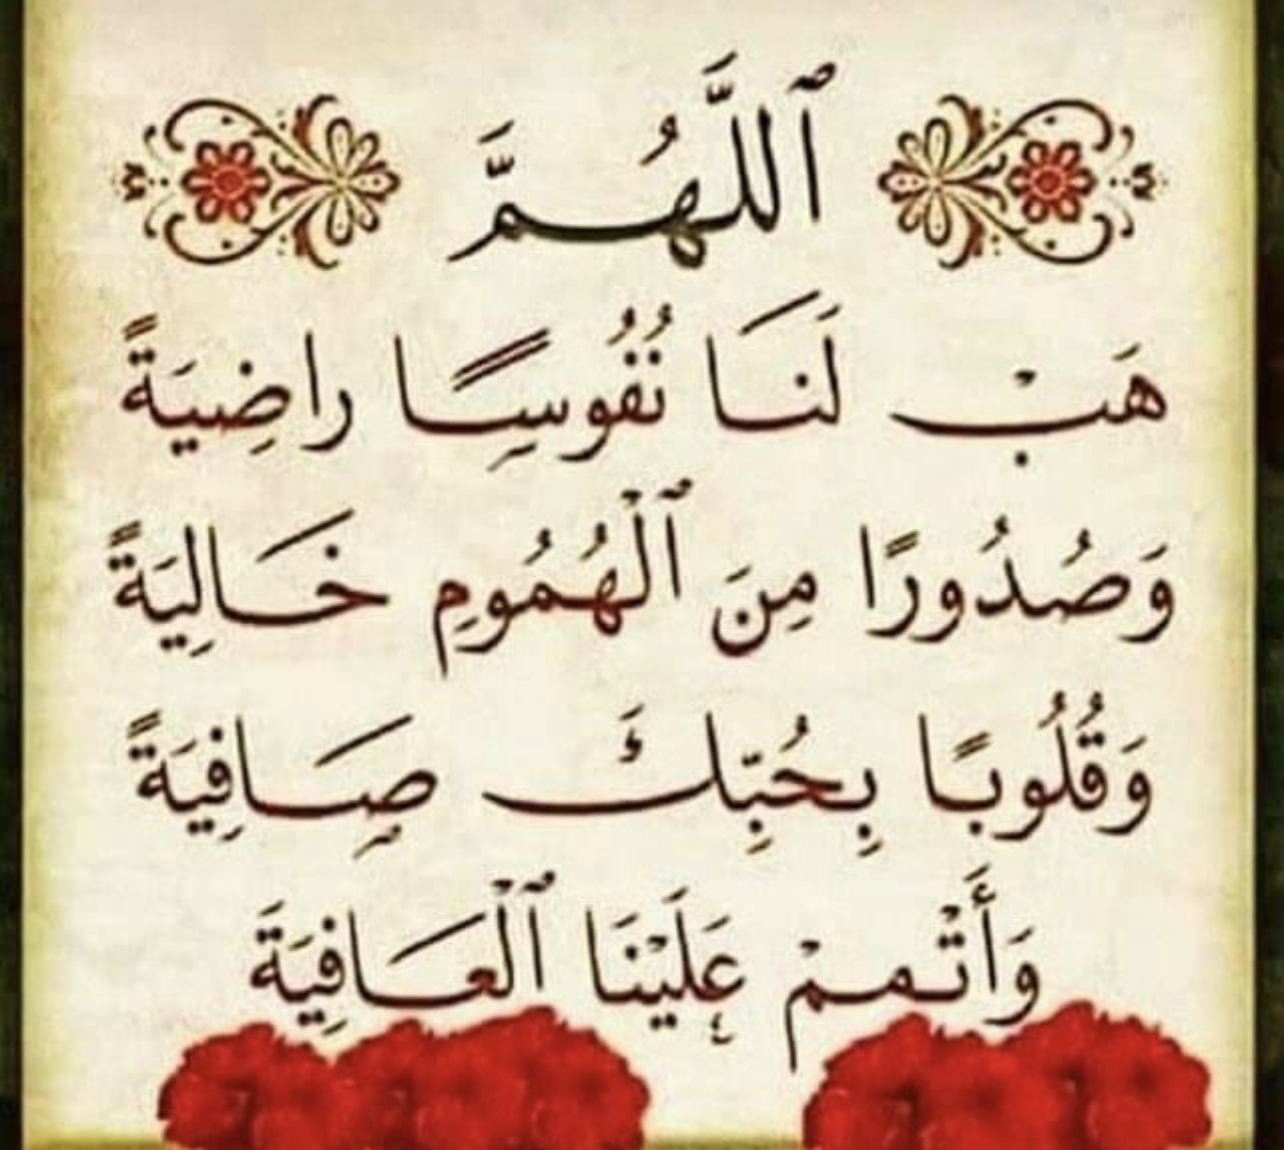 ٱللَّهُمَّ
هَبْ لَنَا نُفُوسًا راضِيَةً
وَصُدُورًا مِنَ ٱلْهُمُومِ خَالِيَةً
وَقُلُوبًا بِحُبِّكَ صَافِيَةً
وَأَتْمِمْ عَلَيْنَا ٱلْعَافِيَةَ